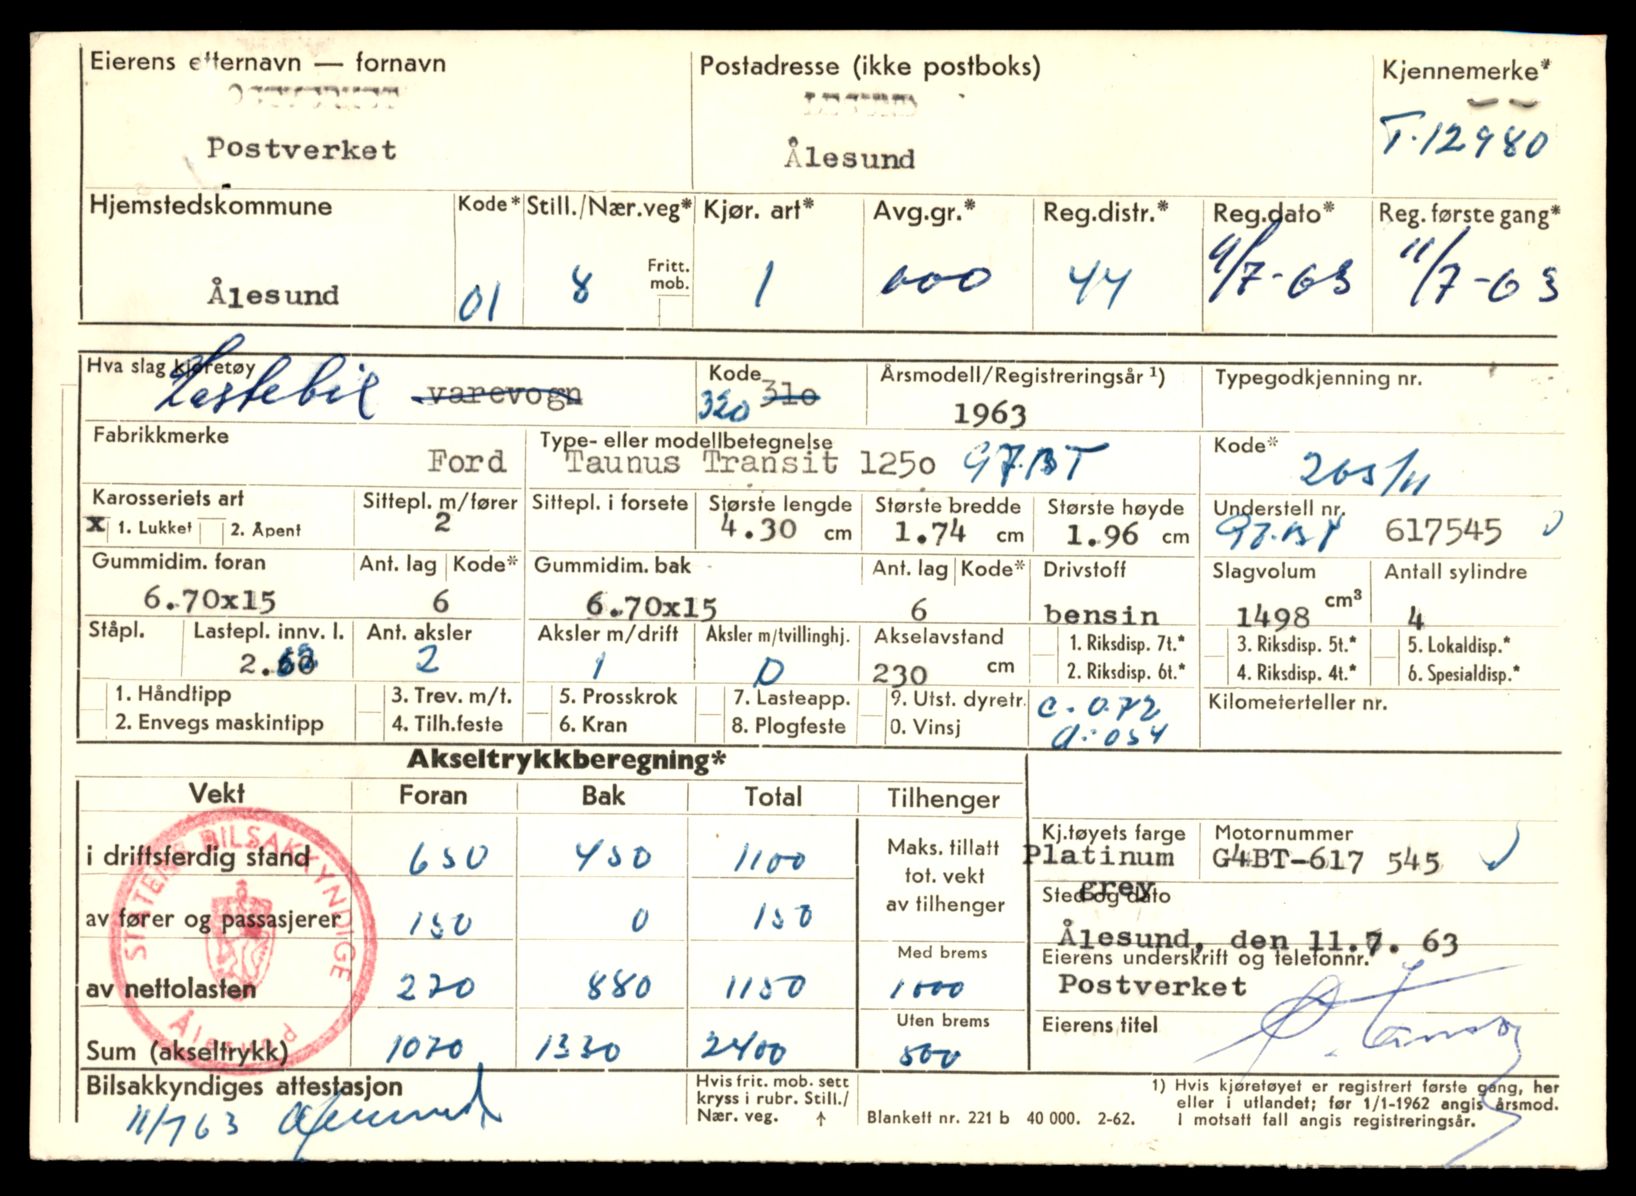 Eierens etternavn — fornavn
Postadresse (ikke postboks)
Kjennemerke*
Postverket
Ålesund
T-12980
Hjemstedskommune
Kode*
Still./Nær.veg*
Kjør. art*
Avg.gr.*
Reg.distr.*
Reg.dato*
Reg. første gang*
Fritt. mob.
Ålesund
01
8
1
000
44
11/7-63
11/7-63
Hva slag kjøretøy
Lastebil varevogn
Kode
320 310
Årsmodell/Registreringsår ¹)
1963
Typegodkjenning nr.
Fabrikkmerke
Ford
Type- eller modellbetegnelse
Taunus Transit 1250 G7.BT
Kode*
203/11
Karosseriets art
x 1. Lukket 2. Åpent
Sittepl. m/fører
2
Sittepl. i forsete
Største lengde
4.30 cm
Største bredde
1.74 cm
Største høyde
1.96 cm
Understell nr.
617545
Gummidim. foran
6.70x15
Ant. lag
6
Kode*
Gummidim. bak
6.70x15
Ant. lag
6
Kode*
Drivstoff
bensin
Slagvolum
1498 cm³
Antall sylindre
4
Ståpl.
Lastepl. innv. l.
Ant. aksler
2
Aksler m/drift
1
Aksler m/tvillinghj.
0
Akselavstand
230 cm
1. Riksdisp. 7t.*
2. Riksdisp. 6t.*
3. Riksdisp. 5t.*
4. Riksdisp. 4t.*
5. Lokaldisp.*
6. Spesialdisp.*
1. Håndtipp
2. Envegs maskintipp
3. Trev. m/t.
4. Tilh.feste
5. Prosskrok
6. Kran
7. Lasteapp.
8. Plogfeste
9. Utst. dyretr.
0. Vinsj
c. 0.72
d. 054
Kilometerteller nr.
Akseltrykkberegning*
Vekt
Foran
Bak
Total
Tilhenger
i driftsferdig stand
650
450
1100
Maks. tillatt
tot. vekt
av tilhenger
av fører og passasjerer
150
0
150
Med brems
av nettolasten
270
880
1150
1000
Uten brems
Sum (akseltrykk)
1070
1330
2400
500
STATENS BILSAKKYNDIGE
Ålesund
Kj.tøyets farge
Platinum
grey
Motornummer
G4BT-617 545
Sted og dato
Ålesund, den 11.7. 63
Eierens underskrift og telefonnr.
Postverket
Eierens titel
Bilsakkyndiges attestasjon
11/7 63
Hvis frit. mob. sett
kryss i rubr. Still./
Nær. veg. ↑
Blankett nr. 221 b 40 000. 2-62.
1) Hvis kjøretøyet er registrert første gang, her
eller i utlandet; før 1/1-1962 angis årsmod.
I motsatt fall angis registreringsår.